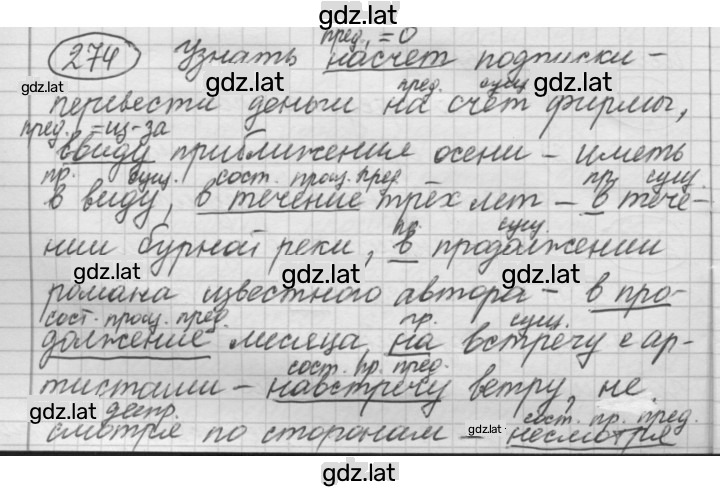 gdz.lat
пред. = О
274 Узнать насчет подписки -
gdz.lat gdz.lat gdz.lat
пред. сущ.
перевести деньги на счет фирмы,
пред. = из-за
ввиду приближения осени - иметь
пр. сущ. сост. произ. пред. пр. сущ.
в виду, в течение трёх лет - в тече-
gdz.lat gdz.lat gdz.lat
пр. сущ.
нии бурной реки, в продолжении
gdz.lat gdz.lat gdz.lat
романа известного автора - в про-
сост. произ. пред. пр. сущ.
должение месяца, на встречу с ар-
сост. пр. пред.
тистами - навстречу ветру, не
gdz.lat gdz.lat gdz.lat
деепр. сост. пр. пред.
смотря по сторонам - несмотря
gdz.lat